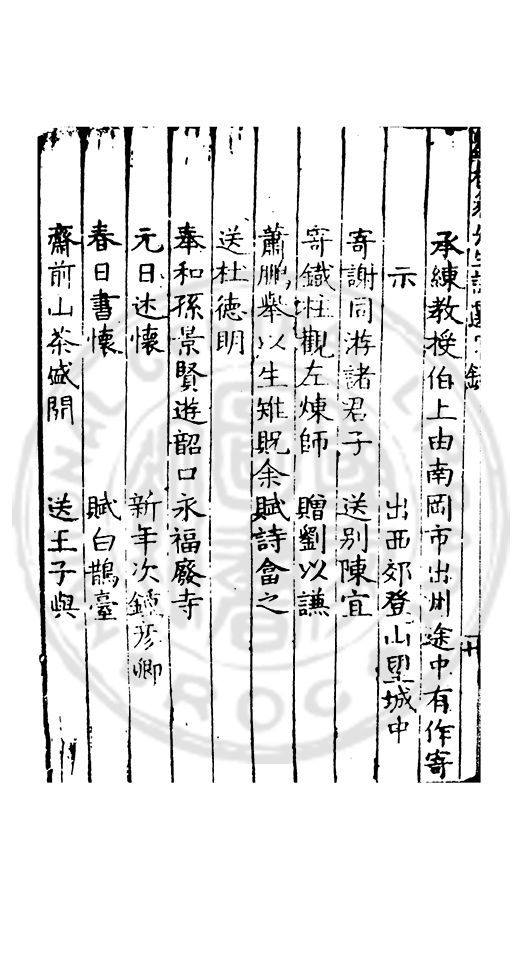 承練教授伯上由南岡市出州途中有作寄
示　出西郊登山𥈠城中
寄謝同游諸君子　送別陳宜
寄鐵柱觀左煉師　贈劉以謙
蕭鵬舉以生雉貺余賦詩畣之
送杜德明
奉和孫景賢遊韶口永福廢寺
元日述懷　新年次鍾彥卿
春日書懷　賦白鵲臺
齋前山茶盛開　送王子與